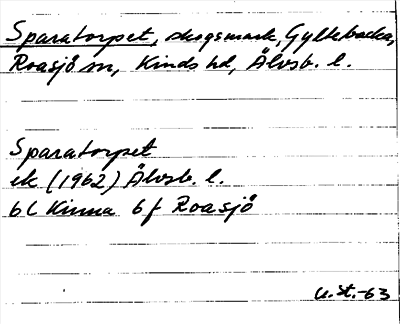 Sparatorpet, skogsmark, Gyllebacka,
Roasjö sn, Kinds hd, Älvsb. l.
Sparatorpet
ek (1962) Älvsb. l.
6C Kinna 6f Roasjö
U.St.-63